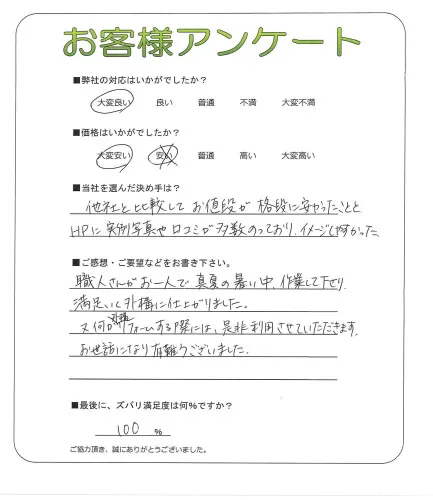 お客様アンケート
■弊社の対応はいかがでしたか？
大変良い 良い 普通 不満 大変不満
■価格はいかがでしたか？
大変安い 安い 普通 高い 大変高い
■当社を選んだ決め手は？
他社と比較してお値段が格段に安かったことと
HPに実例写真や口コミが多数のっており、イメージし易かった
■ご感想・ご要望などをお書き下さい。
職人さんがお一人で真夏の暑い中、作業して下さり
満足いく外構に仕上がりました。
又何かリフォームする際には、是非利用させていただきます。
お世話になり有難うございました。
■最後に、ズバリ満足度は何％ですか？
100 ％
ご協力頂き、誠にありがとうございました。